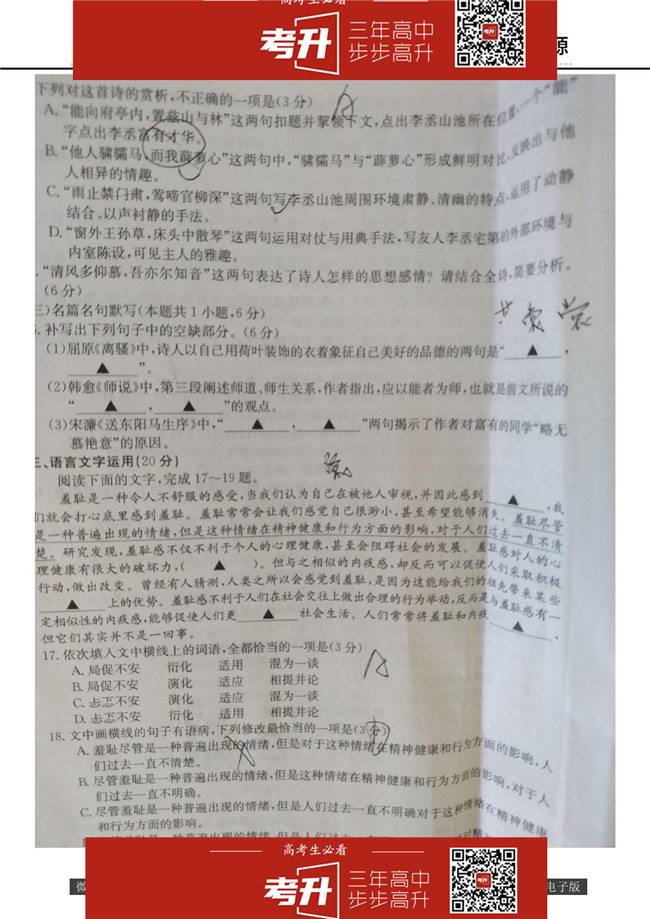 高考生必看
考升
三年高中
步步高升
源
下列对这首诗的赏析,不正确的一项是(3分)
A.“能向府亭内,置兹山与林”这两句扣题并掣领下文,点出李丞山池所在位置,一个“能”
字点出李丞富有才华。
B.“他人骕骦马,而我薜萝心”这两句中,“骕骦马”与“薜萝心”形成鲜明对比,反映出与他
人相异的情趣。
C.“雨止禁门肃,莺啼官柳深”这两句写李丞山池周围环境肃静、清幽的特点,运用了动静
结合、以声衬静的手法。
D.“窗外王孙草,床头中散琴”这两句运用对仗与用典手法,写友人李丞宅第的外部环境与
内室陈设,可见主人的雅趣。
.“清风多仰慕,吾亦尔知音”这两句表达了诗人怎样的思想感情?请结合全诗,简要分析。
(6分)
三)名篇名句默写(本题共1小题,6分)
.补写出下列句子中的空缺部分。(6分)
(1)屈原《离骚》中,诗人以自己用荷叶装饰的衣着象征自己美好的品德的两句是“▲,
▲”。
(2)韩愈《师说》中,第三段阐述师道、师生关系,作者指出,应以能者为师,也就是前文所说的
“▲,▲”的观点。
(3)宋濂《送东阳马生序》中,“▲,▲”两句揭示了作者对富有的同学“略无
慕艳意”的原因。
三、语言文字运用(20分)
阅读下面的文字,完成17~19题。
羞耻是一种令人不舒服的感受,当我们认为自己在被他人审视,并因此感到▲,我
们就会打心底里感到羞耻。羞耻常常会让我们感觉自己很渺小,甚至希望能够消失。羞耻尽管
是一种普遍出现的情绪,但是这种情绪在精神健康和行为方面的影响,对于人们过去一直不清
楚。研究发现,羞耻感不仅不利于个人的心理健康,甚至会阻碍社会的发展。羞耻感对人的心
理健康有很大的破坏力,(▲)。但与之相似的内疚感,却反而可以促使人们采取积极
行动,做出改变。曾经有人猜测,人类之所以会感觉到羞耻,是因为这能给我们的祖先带来某些
▲上的优势。羞耻感不利于人们在社会交往上做出合理的行为举动,反而是与羞耻感有一
定相似性的内疚感,能够促使人们更▲社会生活。人们常常将羞耻和内疚▲,
但它们其实并不是一回事。
17.依次填入文中横线上的词语,全都恰当的一项是(3分)
A.局促不安 衍化 适用 混为一谈
B.局促不安 演化 适应 相提并论
C.忐忑不安 演化 适应 混为一谈
D.忐忑不安 衍化 适用 相提并论
18.文中画横线的句子有语病,下列修改最恰当的一项是(3分)
A.羞耻尽管是一种普遍出现的情绪,但是对于这种情绪在精神健康和行为方面的影响,人
们过去一直不清楚。
B.尽管羞耻是一种普遍出现的情绪,但是这种情绪在精神健康和行为方面的影响,对于人
们过去一直不明确。
C.尽管羞耻是一种普遍出现的情绪,但是人们过去一直不明确对于这种情绪在精神健康
和行为方面的影响。
高考生必看
考升
三年高中
步步高升
微
电子版